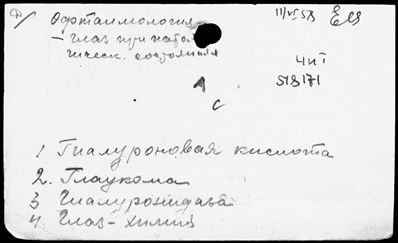 Офтальмология
11/VI 58
– глаз при патол
ическ. состояния
Ч и I
518171
А
С
1 Гиалуроновая кислота
2. Глаукома
3 Гиалуронидаза
4. Глаз - химия